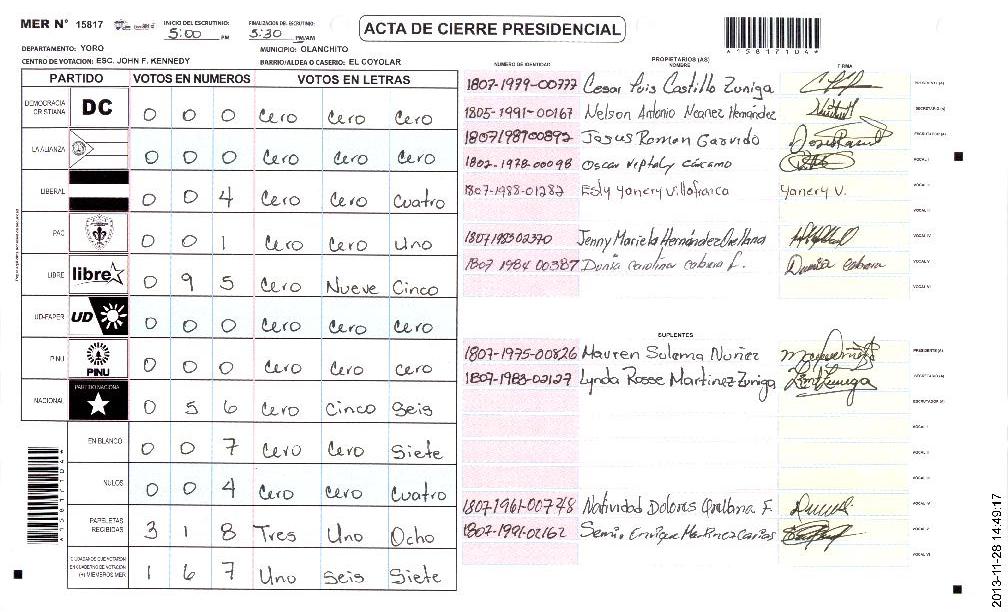 MER N° 15817
INICIO DEL ESCRUTINIO: 5:00 PM
FINALIZACION DEL ESCRUTINIO: 5:30 PM/AM
ACTA DE CIERRE PRESIDENCIAL
*15817104*
DEPARTAMENTO: YORO
MUNICIPIO: OLANCHITO
CENTRO DE VOTACION: ESC. JOHN F. KENNEDY
BARRIO/ALDEA O CASERIO: EL COYOLAR
PARTIDO VOTOS EN NUMEROS VOTOS EN LETRAS
DEMOCRACIA CRISTIANA DC 0 0 0 Cero Cero Cero
LA ALIANZA 0 0 0 Cero Cero Cero
LIBERAL 0 0 4 Cero Cero Cuatro
PAC 0 0 1 Cero Cero Uno
LIBRE libre 0 9 5 Cero Nueve Cinco
UD-FAPER UD 0 0 0 Cero Cero Cero
PINU PINU 0 0 0 Cero Cero Cero
NACIONAL PARTIDO NACIONAL 0 5 6 Cero Cinco Seis
EN BLANCO 0 0 7 Cero Cero Siete
NULOS 0 0 4 Cero Cero Cuatro
PAPELETAS RECIBIDAS 3 1 8 Tres Uno Ocho
CIUDADANOS QUE VOTARON EN CUADERNO DE VOTACION (+) MIEMBROS MER 1 6 7 Uno Seis Siete
*15817104*
NUMERO DE IDENTIDAD PROPIETARIOS (AS) NOMBRE FIRMA
1807-1979-00777 Cesar Luis Castillo Zuniga PRESIDENTE (A)
1805-1991-00167 Nelson Antonio Hernández SECRETARIO (A)
1807198700892 Jesus Roman Garvido ESCRUTADOR (A)
1802-1978-00098 Oscar Cárcamo VOCAL I
1807-1988-01282 Esly Yanery Villafranca Yanery V. VOCAL II
VOCAL III
1807198302370 Jenny Mariela Hernández Orellana VOCAL IV
1807 1984 00387 Dunia Carolina Cabrera L. Dunia Cabrera VOCAL V
VOCAL VI
SUPLENTES
1807-1975-00826 Mauren Sulema Nuñez PRESIDENTE (A)
1807-1983-02127 Lynda Rosse Martinez Zuniga SECRETARIO (A)
ESCRUTADOR (A)
VOCAL I
VOCAL II
VOCAL III
1807-1961-00748 Natividad Dolores Orellana F. VOCAL IV
1807-1991-02162 Enrique Martinez VOCAL V
VOCAL VI
2013-11-28 14:49:17